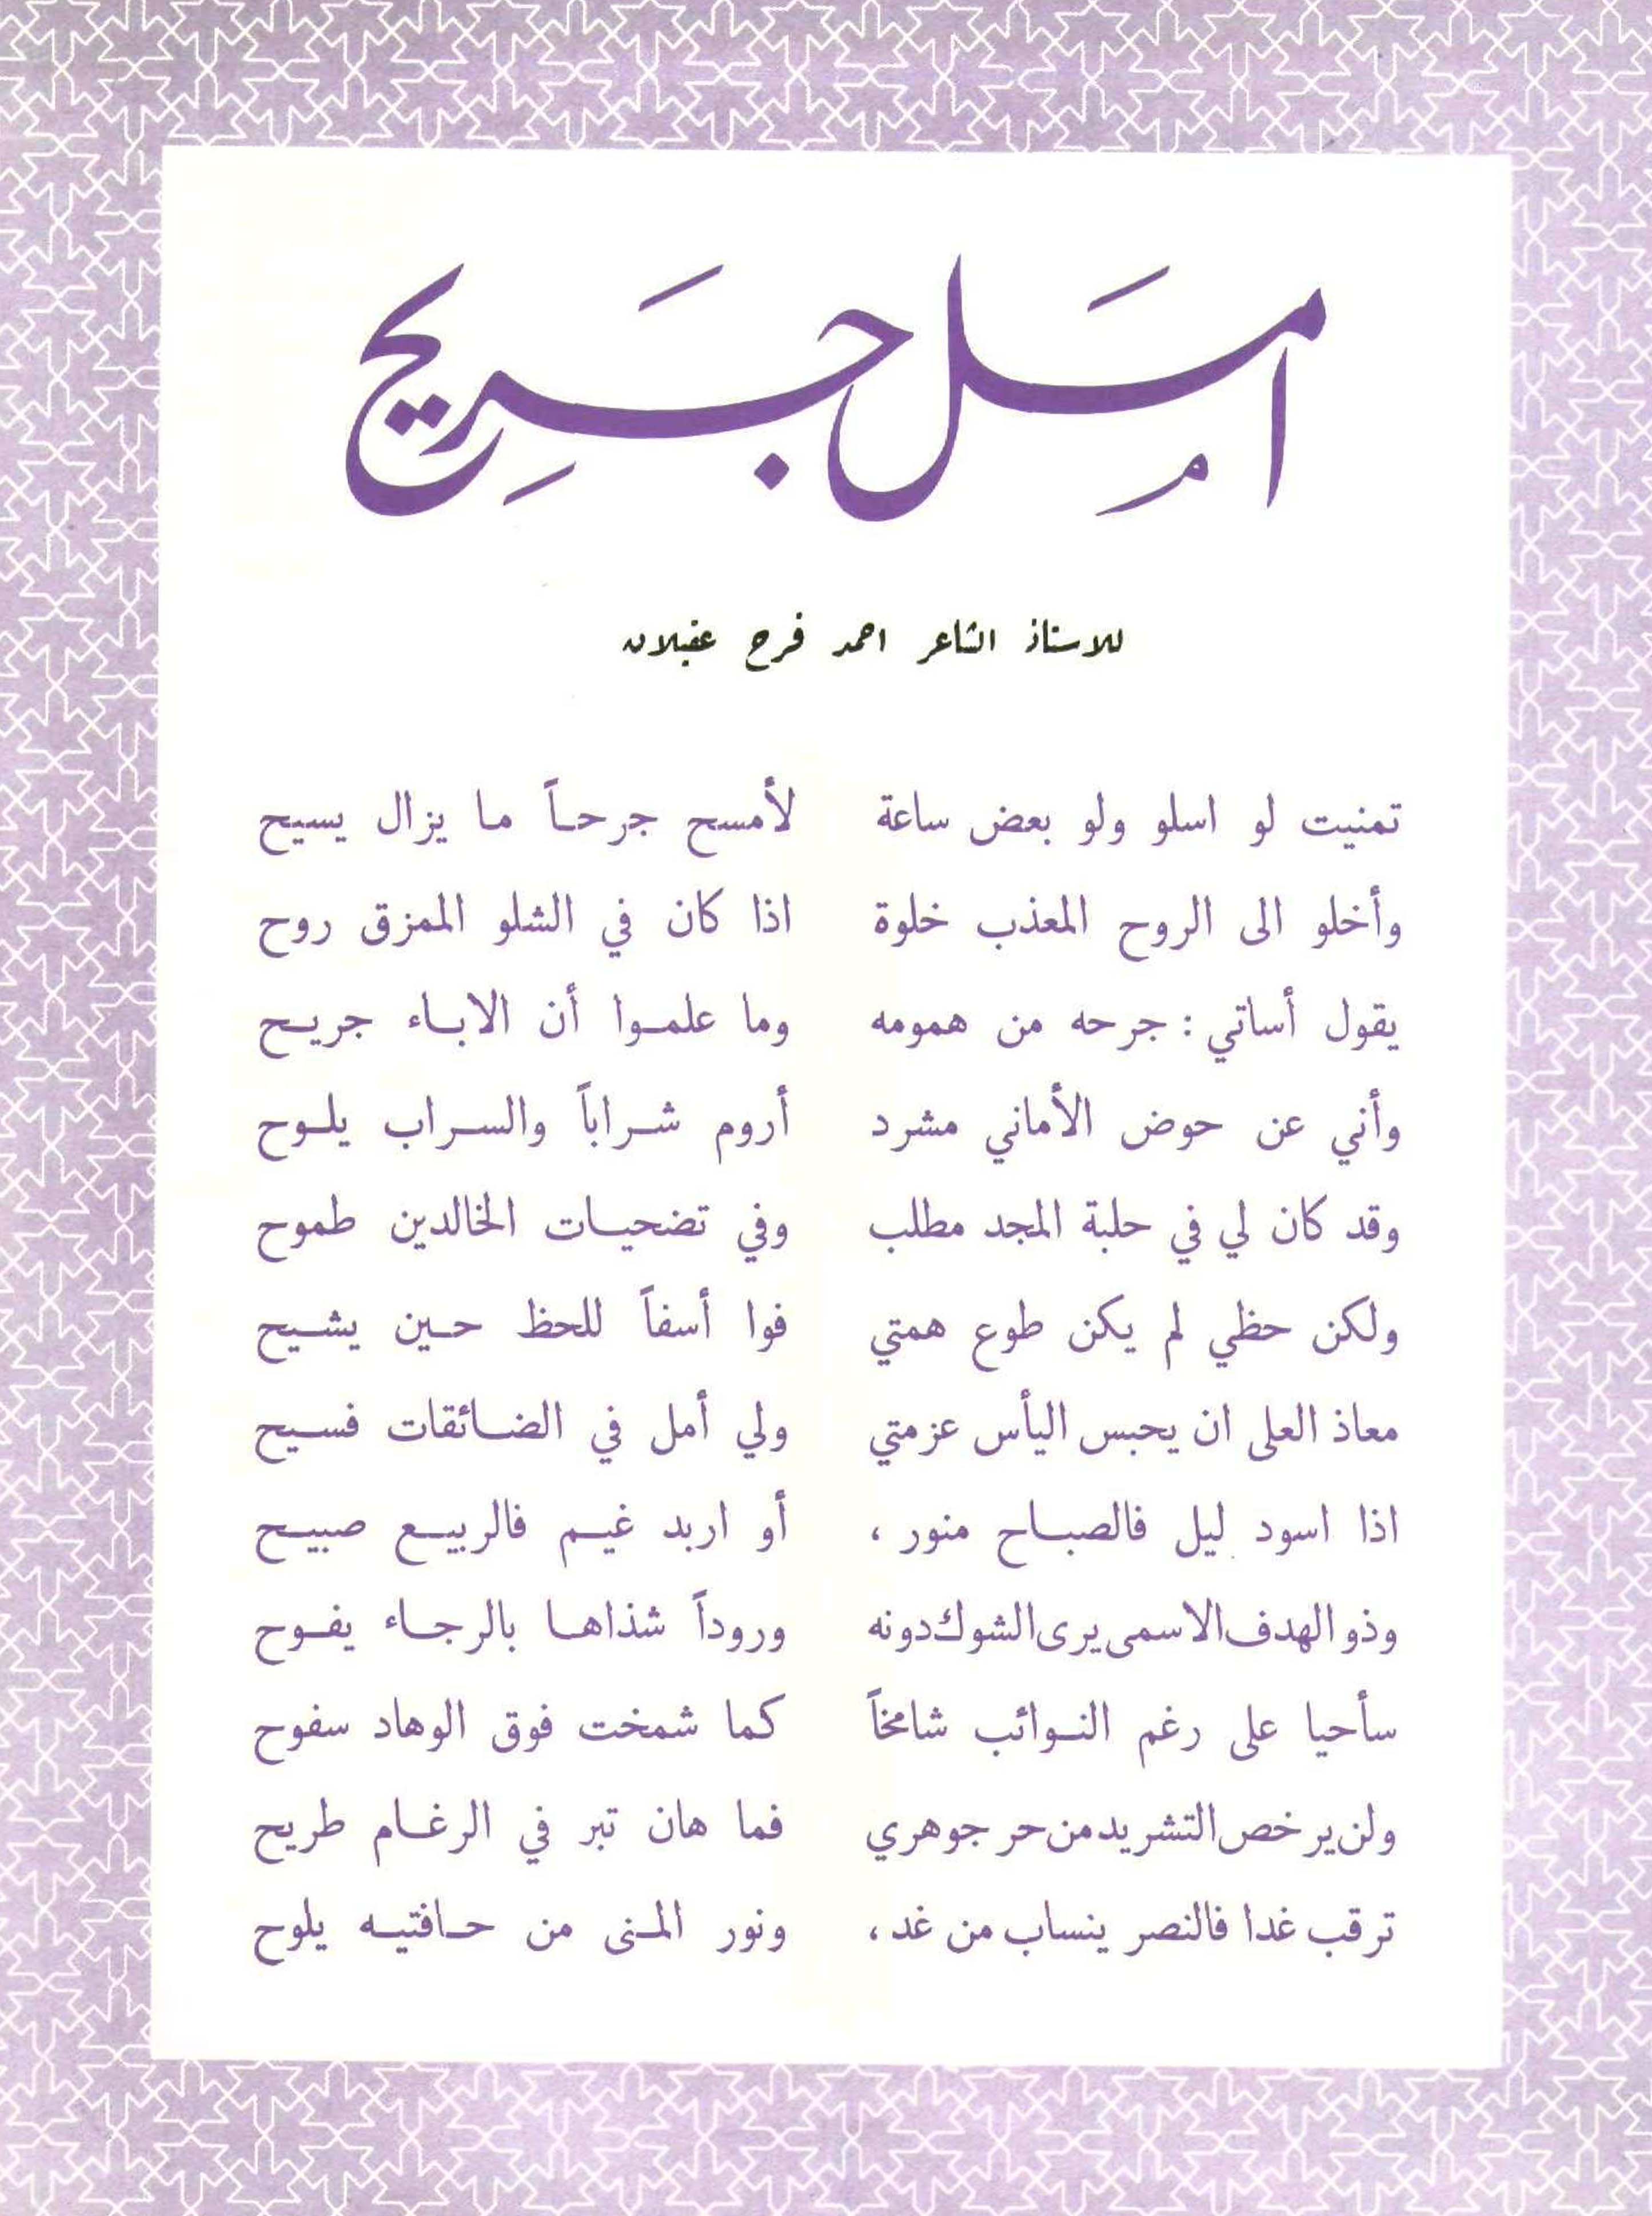 أمل جريح
للاستاذ الشاعر احمد فرح عقيلان
تمنيت لو اسلو ولو بعض ساعة لأمسح جرحاً ما يزال يسيح
وأخلو الى الروح المعذب خلوة اذا كان في الشلو الممزق روح
يقول أساتي : جرحه من همومه وما علموا أن الاباء جريح
وأني عن حوض الأماني مشرد أروم شراباً والسراب يلوح
وقد كان لي في حلبة المجد مطلب وفي تضحيات الخالدين طموح
ولكن حظي لم يكن طوع همتي فوا أسفاً للحظ حين يشيح
معاذ العلى ان يحبس اليأس عزمتي ولي أمل في الضائقات فسيح
اذا اسود ليل فالصباح منور ، أو اربد غيم فالربيع صبيح
وذو الهدف الاسمى يرى الشوك دونه وروداً شذاها بالرجاء يفوح
سأحيا على رغم النوائب شامخاً كما شمخت فوق الوهاد سفوح
ولن يرخص التشريد من حر جوهري فما هان تبر في الرغام طريح
ترقب غدا فالنصر ينساب من غد ، ونور المنى من حافتيه يلوح